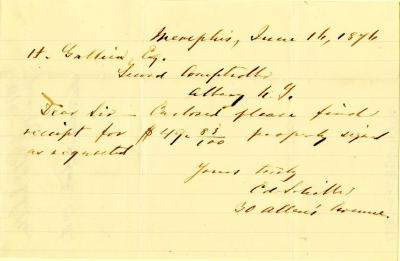 Memphis, June 16, 1876
H. Gallien, Esq.
Second Comptroller
Albany N.Y.
Dear Sir — Enclosed please find
receipt for $49. 83/100 properly signed
as requested
Yours truly
Ed
30 Allen's Avenue.